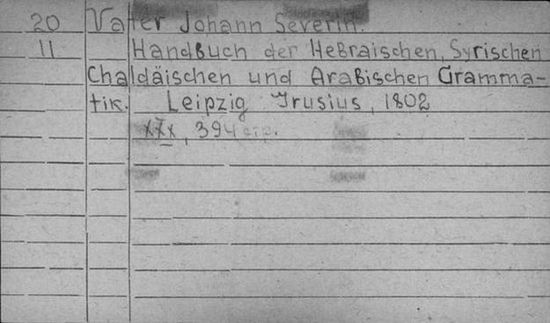 20 Vater Johann Severin.
11 Handbuch der Hebraischen, Syrischen
Chaldäischen und Arabischen Gramma-
tik. Leipzig Irusius, 1802
XXX, 394 стр.